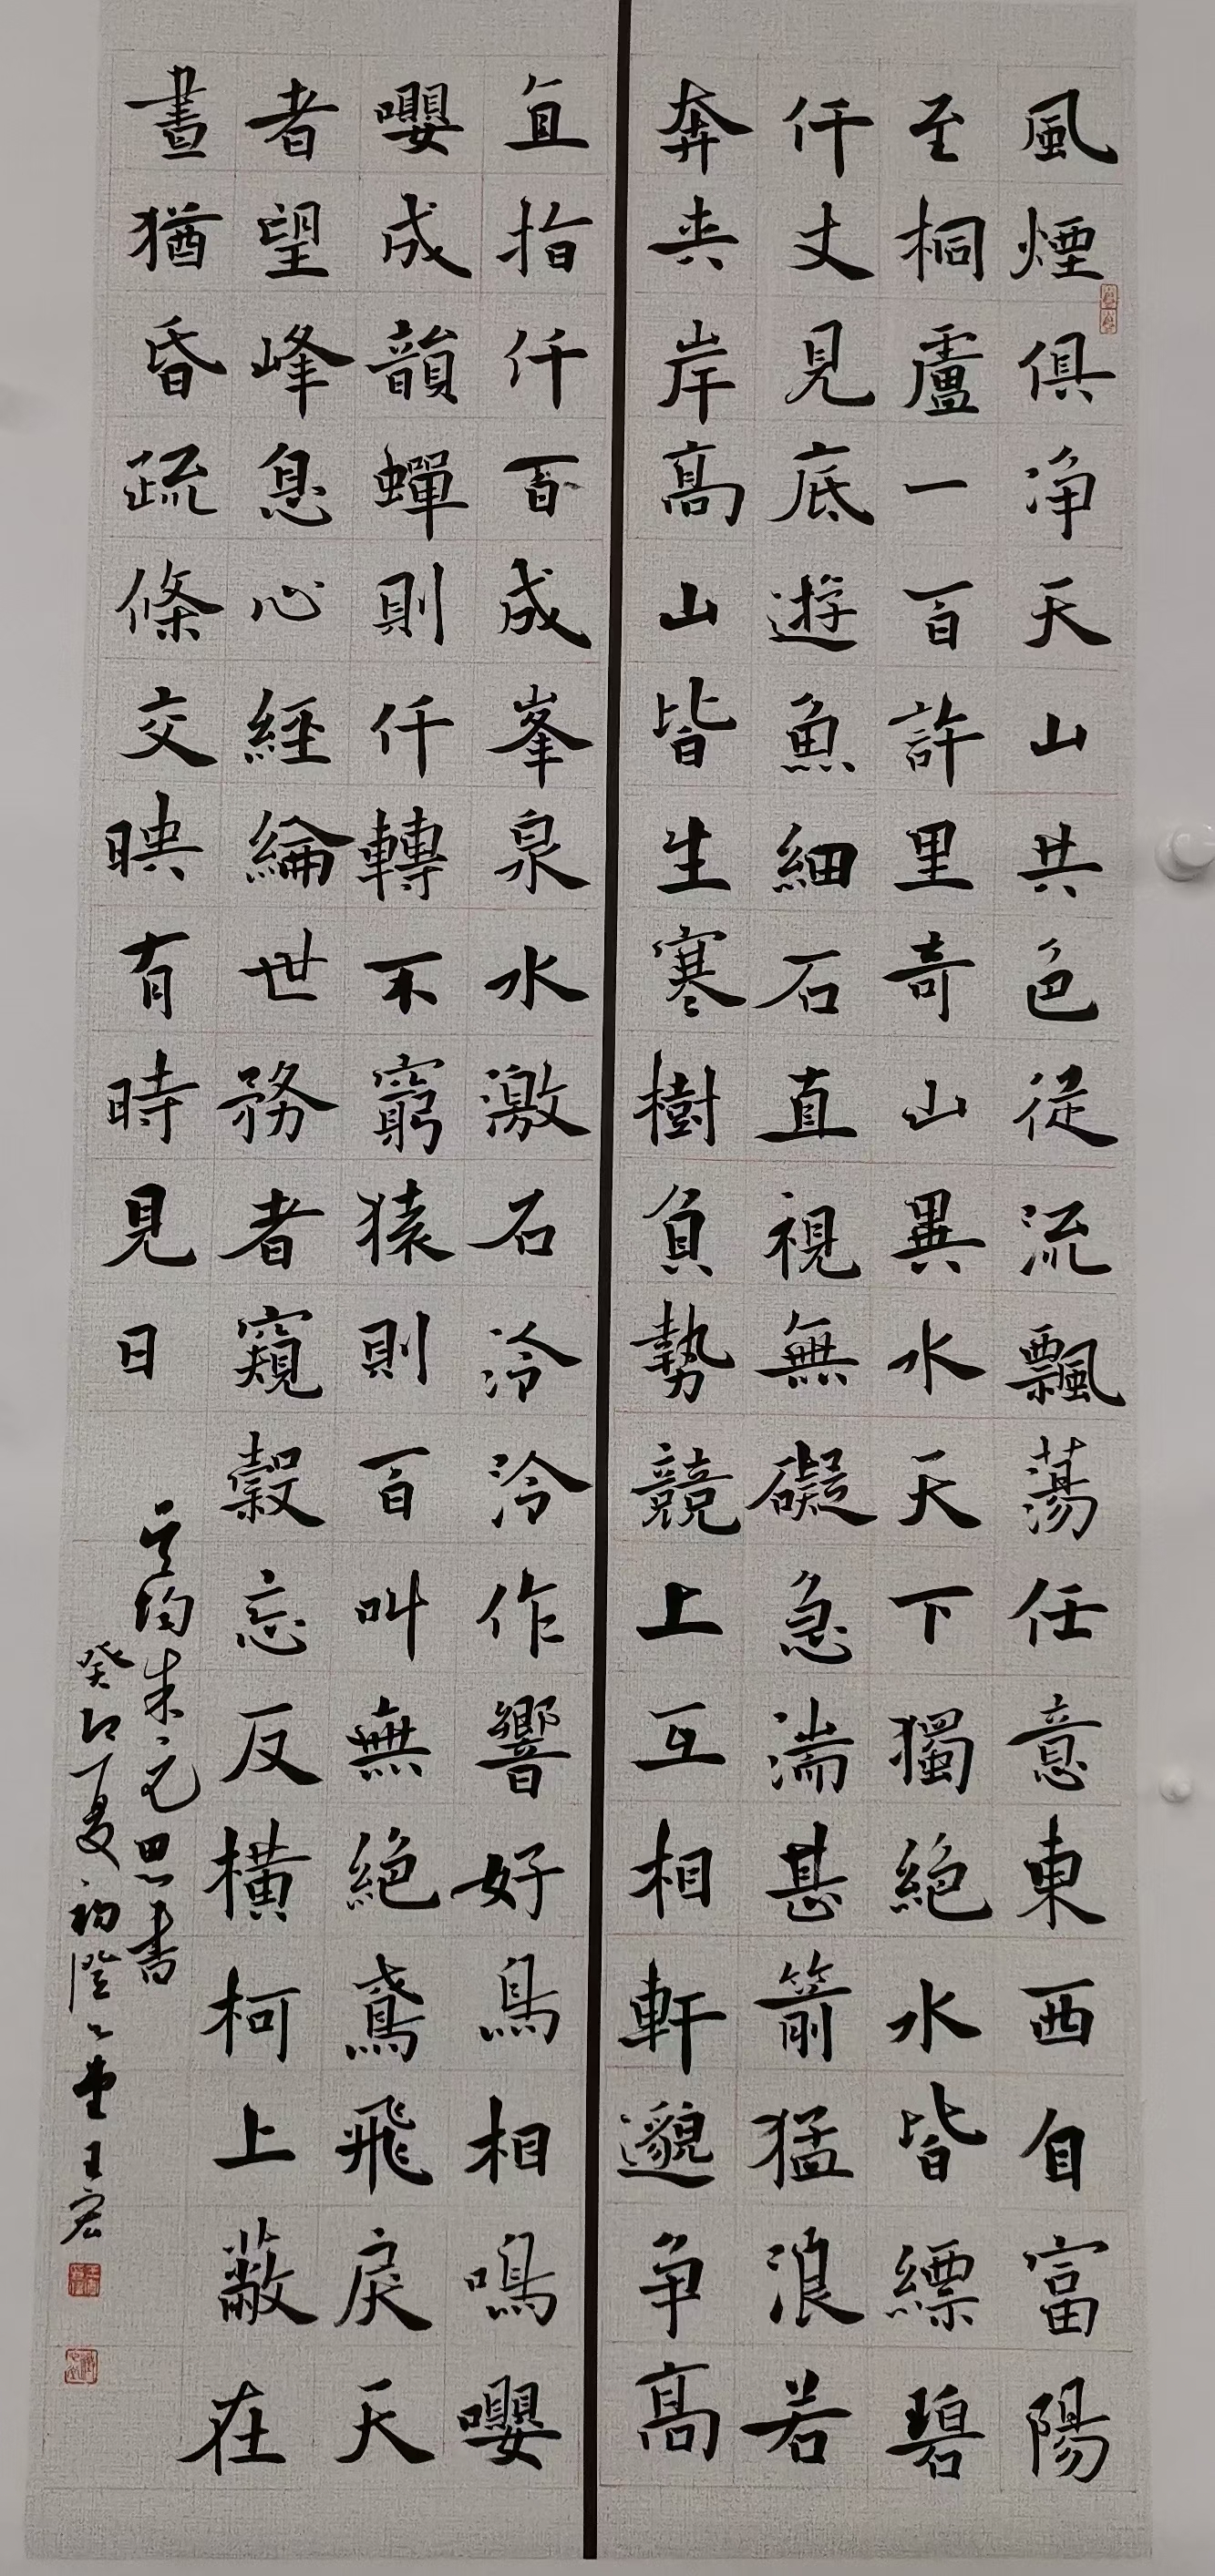 風煙俱净天山共色従流飄蕩任意東西自富陽
至桐盧一百許里奇山異水天下獨絶水皆縹碧
仟丈見底遊魚細石直視無礙急湍甚箭猛浪若
奔夾岸高山皆生寒樹負勢競上互相軒邈争高
直指仟百成峯泉水激石泠泠作響好鳥相鳴嚶
嚶成韻蟬則仟轉不窮猿則百叫無絶鳶飛戾天
者望峰息心經綸世務者窺穀忘反橫柯上蔽在
晝猶昏疏條交映有時見日
吴均朱元思書
癸卯夏初澄々堂王宏